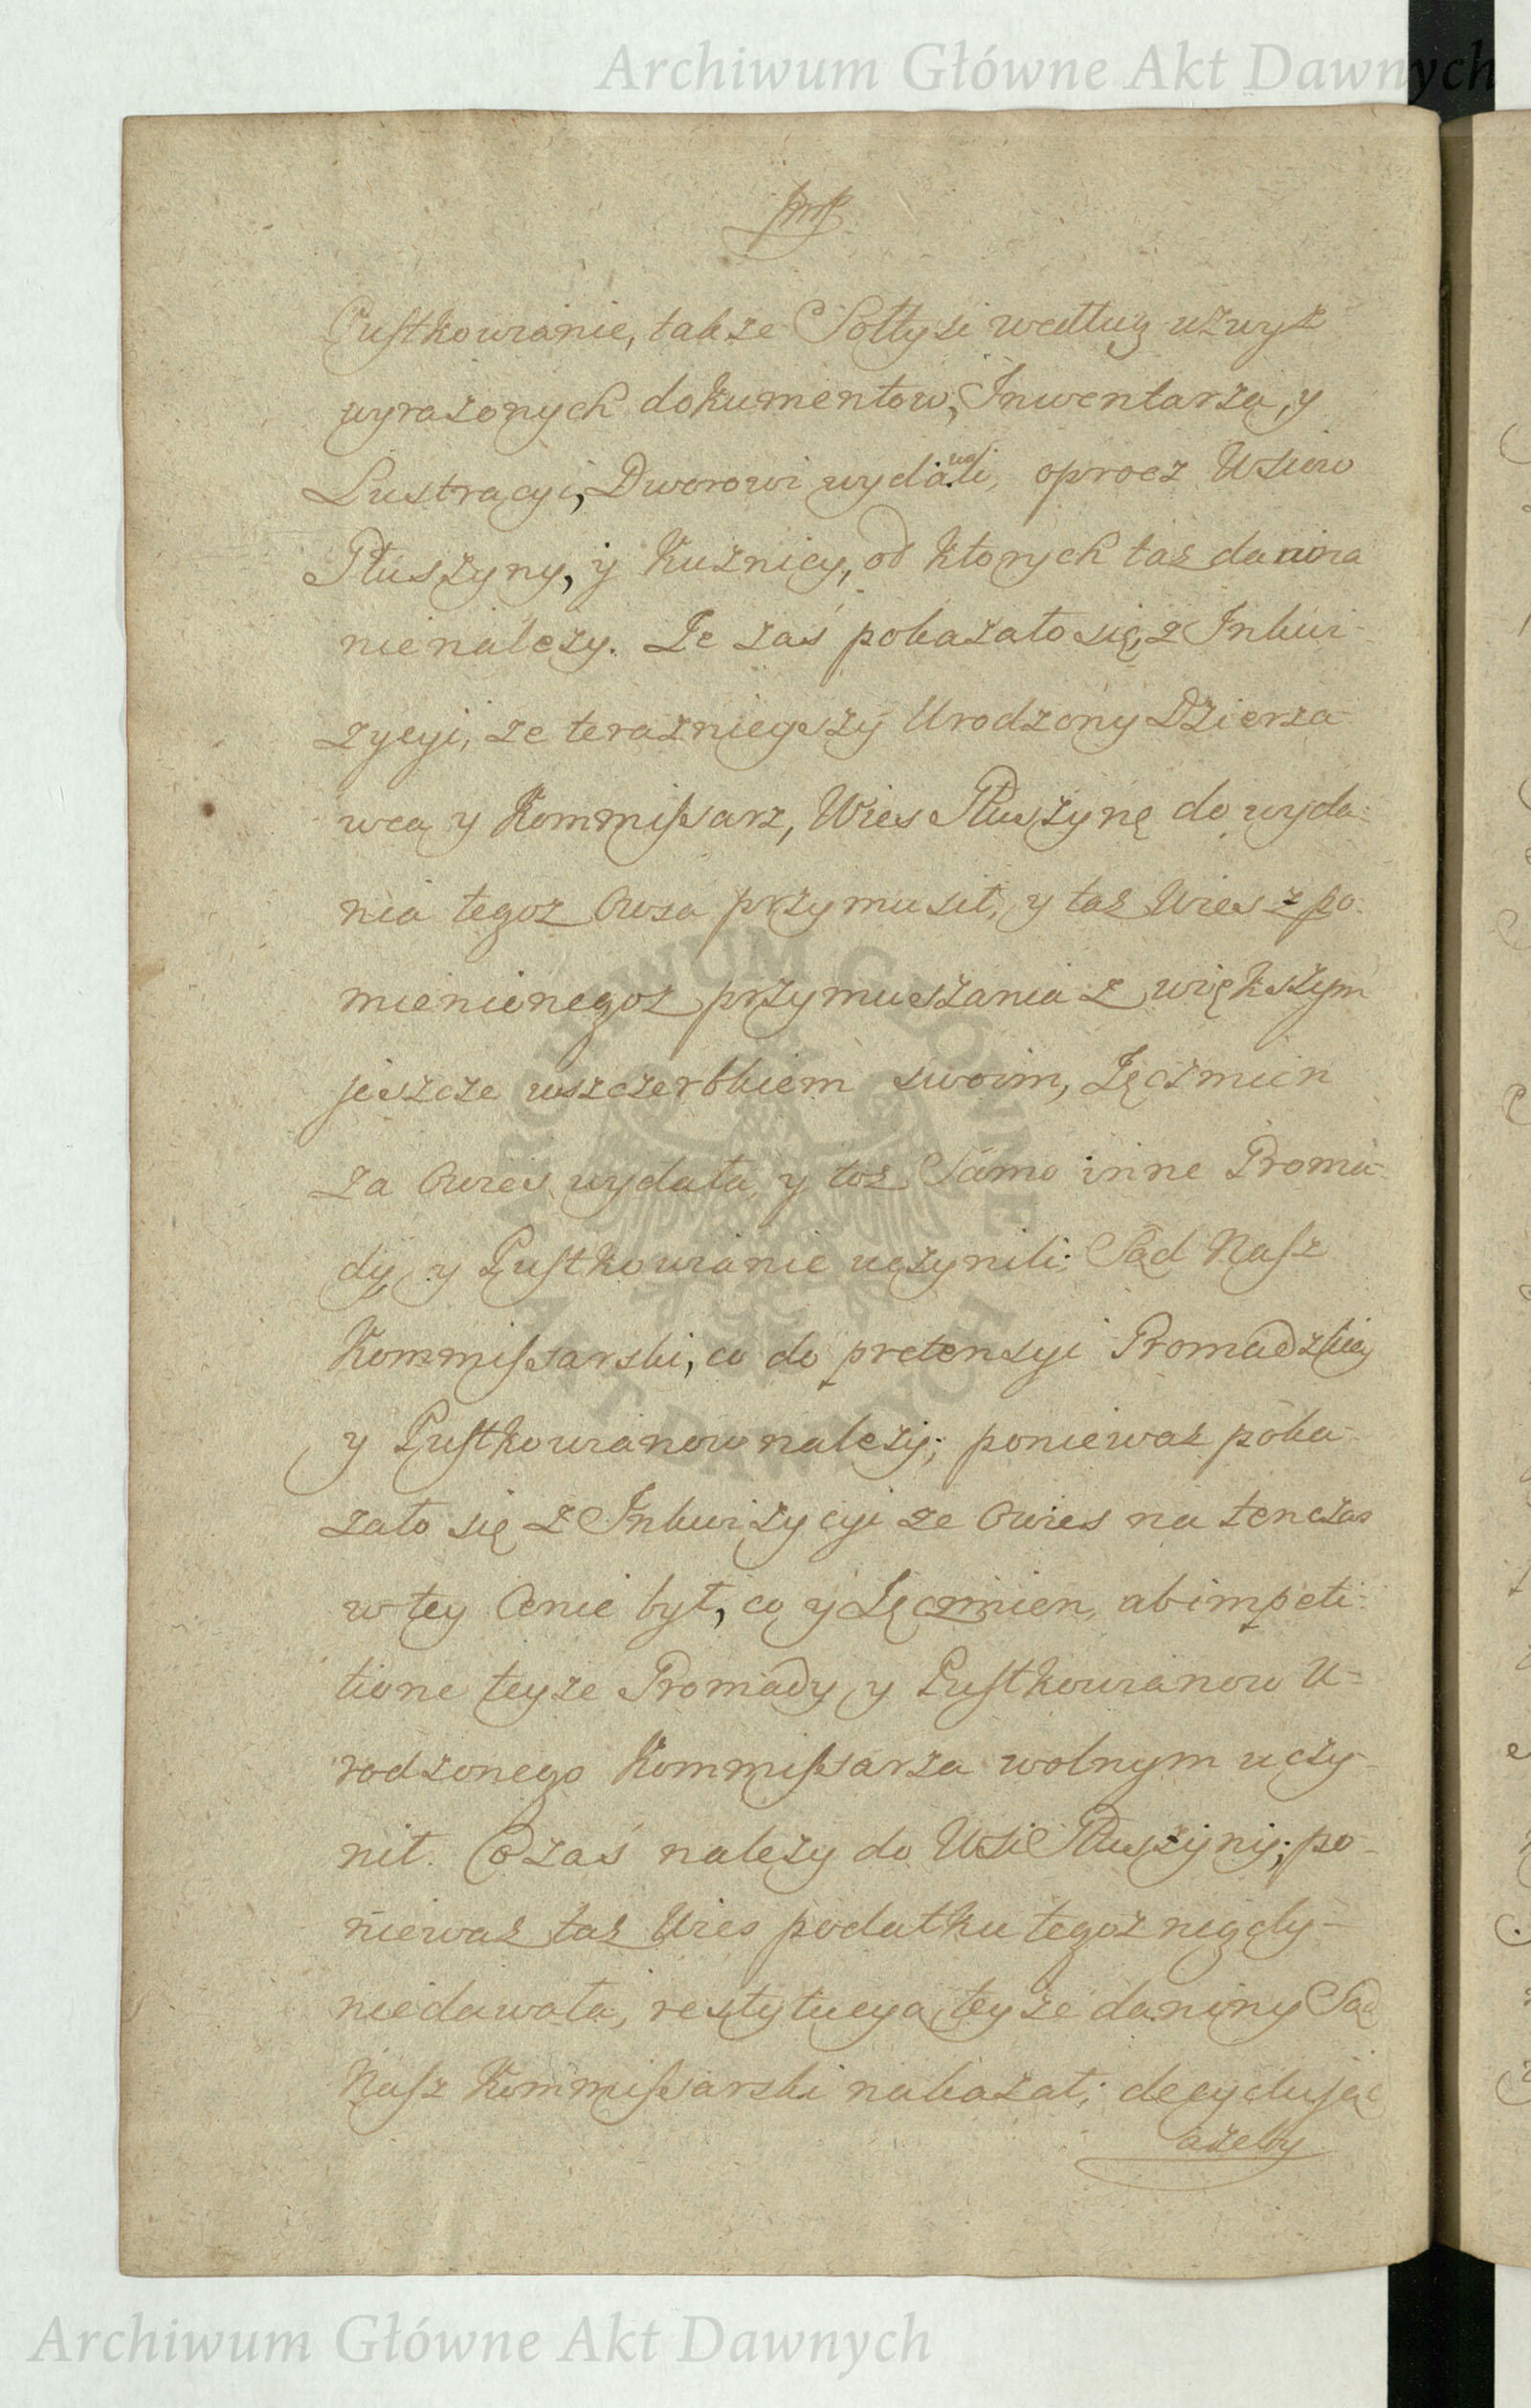 Archiwum Główne Akt Dawnych
Pustkowianie, takze Sołtysi według uzwyz
wyrazonych dokumentow, Inwentarza, y
Lustracyi, Dworowi wydawali, oprocz Wsiow
Płuszyny, y Kuznicy, od ktorych taz danina
nienalezy. Ze zaś pokazało się, z Inkwi-
zycyi, ze teraznieyszy Urodzony Dzierza-
wca y Kommissarz, Wies Płuszynę do wyda-
nia tegoz Owsa przymusił, y taz Wies z po-
mienionegoz przymuszania z większym
jeszcze uszczerbkiem swoim, Jęczmien
za Owies wydała, y toz Samo inne Groma-
dy, y Pustkowianie uczynili: Sąd Nasz
Kommissarski, co do pretensyi Gromadzkiey
y Pustkowianow nalezy; poniewaz poka-
zało się z Inkwizycyi ze Owies na tenczas
w tey Cenie był, co y Jęczmien, ab impeti-
tione teyze Gromady, y Pustkowianow U-
rodzonego Kommissarza wolnym uczy-
nił. Co zaś nalezy do Wsi Płuszyny; po-
niewaz taz Wies podatku tegoz nigdy
niedawała, restytucya teyze daniny Sąd
Nasz Kommissarski nakazał; decydując
azeby
ARCHIWUM GŁÓWNE
AKT DAWNYCH
Archiwum Główne Akt Dawnych